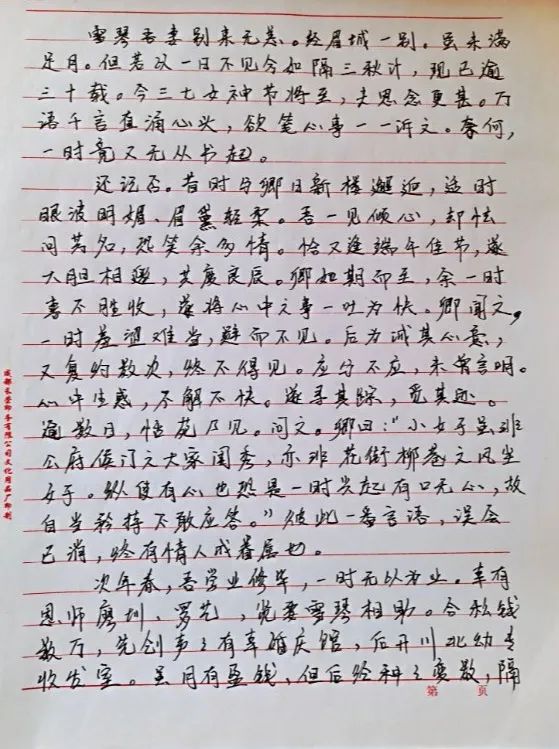 雪琴吾妻别来无恙。轻眉城一别。虽未满
足月。但若以一日不见兮如隔三秋计，现已逾
三十载。今三七女神节将至，夫思念更甚。万
语千言直涌心头，欲笔心事一一诉之。奈何，
一时竟又无从书起。
还记否。昔时与卿日新楼邂逅，这时
眼波明媚、眉黛轻柔。吾一见倾心，却怯
问芳名，恐笑余多情。恰又逢端午佳节，遂
大胆相邀，共度良辰。卿如期而至，余一时
喜不胜收，遂将心中之事一吐为快。卿闻之，
一时羞涩难当，辞而不见。后为诚其心意，
又复约数次，终不得见。应与不应，未曾言明。
心中生惑，不解不快。遂寻其踪，觅其迹。
逾数日，悟苑乃见。问之。卿曰："小女子虽非
公府侯门之大家闺秀，亦非花街柳巷之风尘
女子。纵使有心也恐是一时兴起有口无心，故
自当矜持不敢应答。"彼此一番言语，误会
已消，终有情人成眷属也。
次年春，吾学业修毕，一时无以为业。幸有
恩师廖圳、罗艺，贤妻雪琴相助。合私钱
数万，先创声之有幸婚庆馆，后开川北幼专
收发室。虽月有盈钱，但后经种之变数，隔
第 页
成都长荣印务有限公司文化用品厂印制